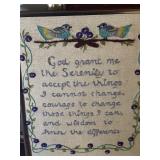 God grant me
the Serenity to
accept the things
I cannot change,
courage to change
those things I can
and wisdom to
know the difference